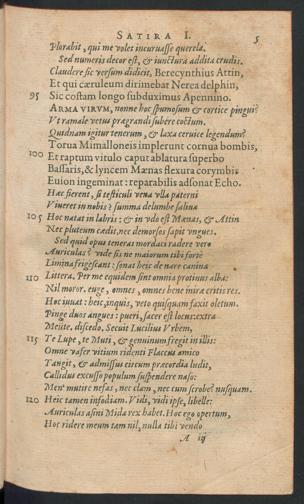 SATIRA I. 5
Plorabit, qui me volet incuruasse querela.
Sed numeris decor est, & iunctura addita crudis.
Claudere sic versum didicit, Berecynthius Attin,
Et qui cæruleum dirimebat Nerea delphin,
95 Sic costam longo subduximus Apennino.
ARMA VIRVM, nonne hoc spumosum & cortice pingui?
Vt ramale vetus prægrandi subere coctum.
Quidnam igitur tenerum, & laxa ceruice legendum?
Torua Mimalloneis implerunt cornua bombis,
100 Et raptum vitulo caput ablatura superbo
Bassaris, & lyncem Mænas flexura corymbis
Euion ingeminat: reparabilis adsonat Echo.
Hæc fierent, si testiculi vena vlla paterni
Viueret in nobis? summa delumbe saliua
105 Hoc natat in labris: & in vdo est Mænas, & Attin
Nec pluteum cædit, nec demorsos sapit vngues.
Sed quid opus teneras mordaci radere vero
Auriculas? vide sis ne maiorum tibi forte
Limina frigescant: sonat heic de nare canina
110 Littera. Per me equidem sint omnia protinus alba:
Nil moror. euge, omnes, omnes bene mira eritis res.
Hoc iuuat: heic, inquis, veto quisquam faxit oletum.
Pinge duos angues: pueri, sacer est locus: extra
Meiite. discedo. Secuit Lucilius Vrbem,
115 Te Lupe, te Muti, & genuinum fregit in illis:
Omne vafer vitium ridenti Flaccus amico
Tangit, & admissus circum præcordia ludit,
Callidus excusso populum suspendere naso:
Men' mutire nefas, nec clam, nec cum scrobe? nusquam.
120 Heic tamen infodiam. Vidi, vidi ipse, libelle:
Auriculas asini Mida rex habet. Hoc ego opertum,
Hoc ridere meum tam nil, nulla tibi vendo
A iij